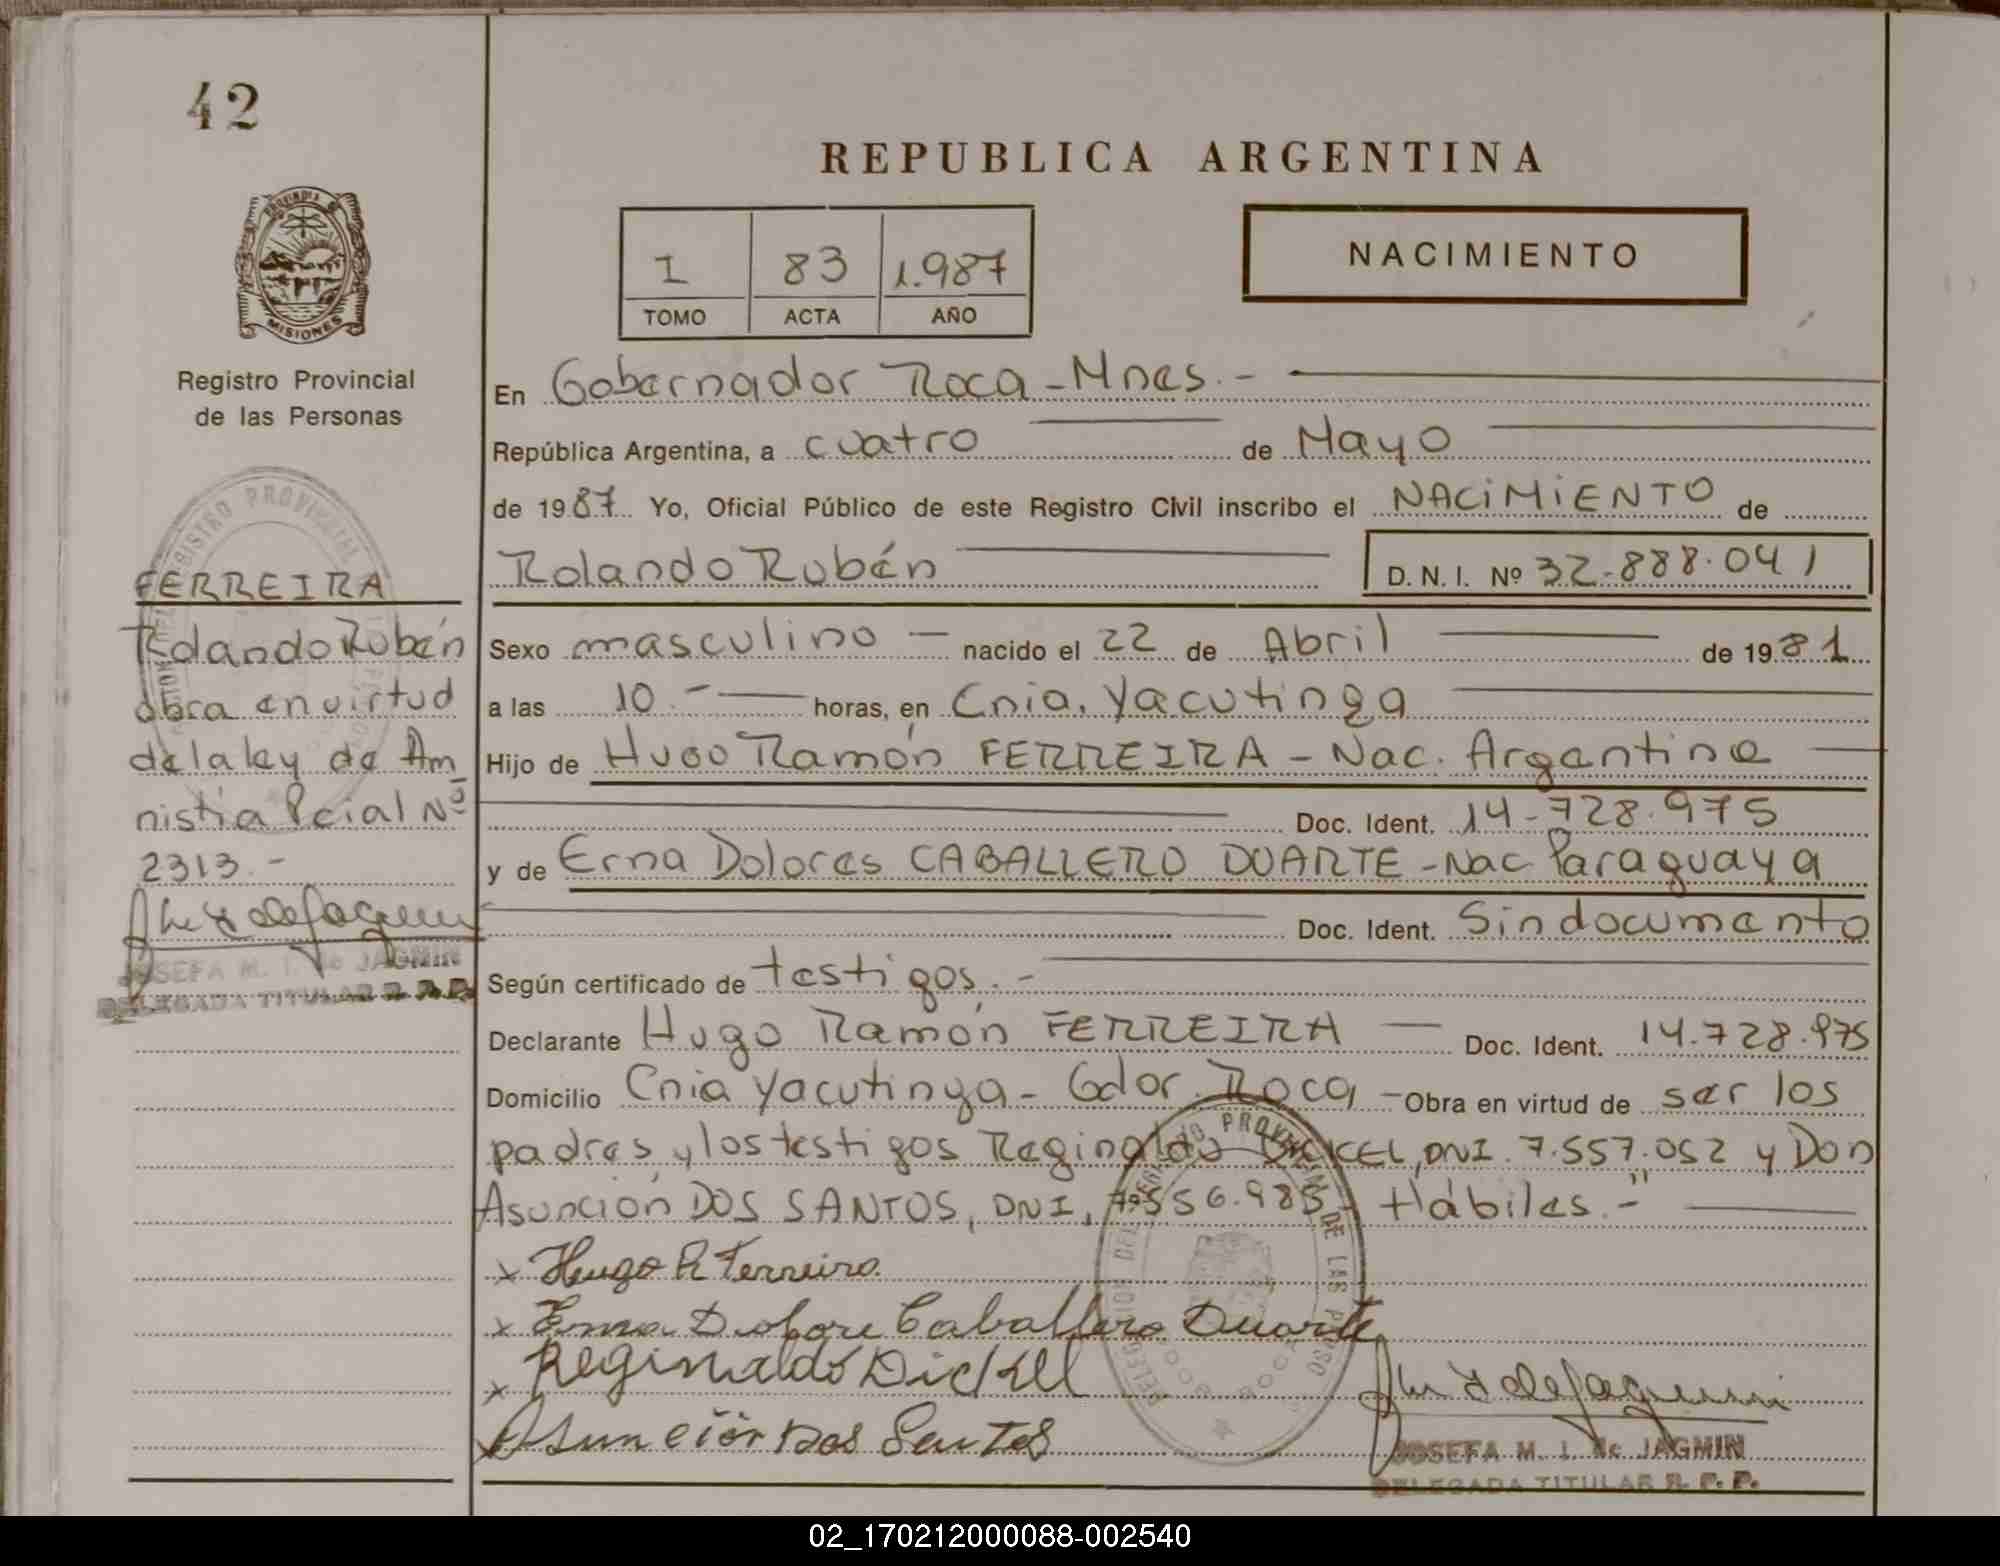 42
REPUBLICA ARGENTINA
PROVINCIA DE
MISIONES
Registro Provincial
de las Personas
I 83 1.987
TOMO ACTA AÑO
NACIMIENTO
En Gobernador Roca - Mnes. -
República Argentina, a cuatro de Mayo
de 1987 Yo, Oficial Público de este Registro Civil inscribo el NACIMIENTO de
Rolando Rubén D. N. I. Nº 32.888.041
Sexo masculino - nacido el 22 de Abril de 1981
a las 10.- horas, en Cnia. Yacutinga
Hijo de Hugo Ramón FERREIRA - Nac. Argentina
Doc. Ident. 14.728.975
y de Erna Dolores CABALLERO DUARTE - Nac Paraguaya
Doc. Ident. Sin documento
Según certificado de testigos. -
Declarante Hugo Ramón FERREIRA - Doc. Ident. 14.728.975
Domicilio Cnia Yacutinga - Gdor. Roca - Obra en virtud de ser los
padres y los testigos Reginaldo DNI. 7.557.052 y Don
Asunción DOS SANTOS, DNI, 7.556.983 - Hábiles. -"
x Hugo R Ferreira
x Erna Dolore Caballero Duarte
x Reginaldo Dickel
x Asunción Dos Santos
JOSEFA M. I. de JAGMIN
DELEGADA TITULAR R. P. P.
REGISTRO PROVINCIAL
FERREIRA
Rolando Rubén
obra en virtud
de la ley de Am
nistía Pcial Nº
2313. -
JOSEFA M. I. de JAGMIN
DELEGADA TITULAR R. P. P.
02_170212000088-002540